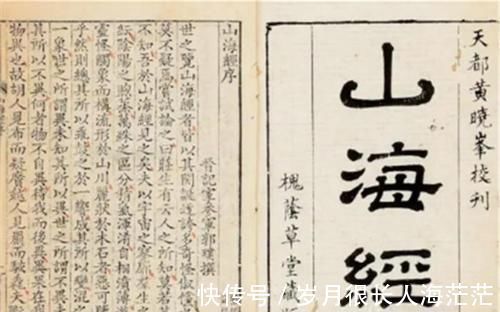 天都黄曉峯校刊
山海經
槐蔭草堂藏
山海經序
晉記室參軍郭璞撰
世之覽山海經者皆以其閎誕迂誇多奇怪俶儻
莫不疑焉嘗試論之曰莊生有云人之所知莫
不知吾於山海經見之矣夫以宇宙之寥廓羣生之
紜陰陽之煦蒸萬殊之區分精氣渾淆自相濆薄遊
靈怪觸象而構流形於山川麗狀於木石者惡可勝
乎然則總其所以乖鼓之於一響成其所以變混之
一象世之所謂異未知其所以異世之所謂不
其所以不異何者物不自異待我而後異異果在
物異也故胡人見布而疑黂越人見罽而駭毳夫
快传号／岁月很长人海茫茫